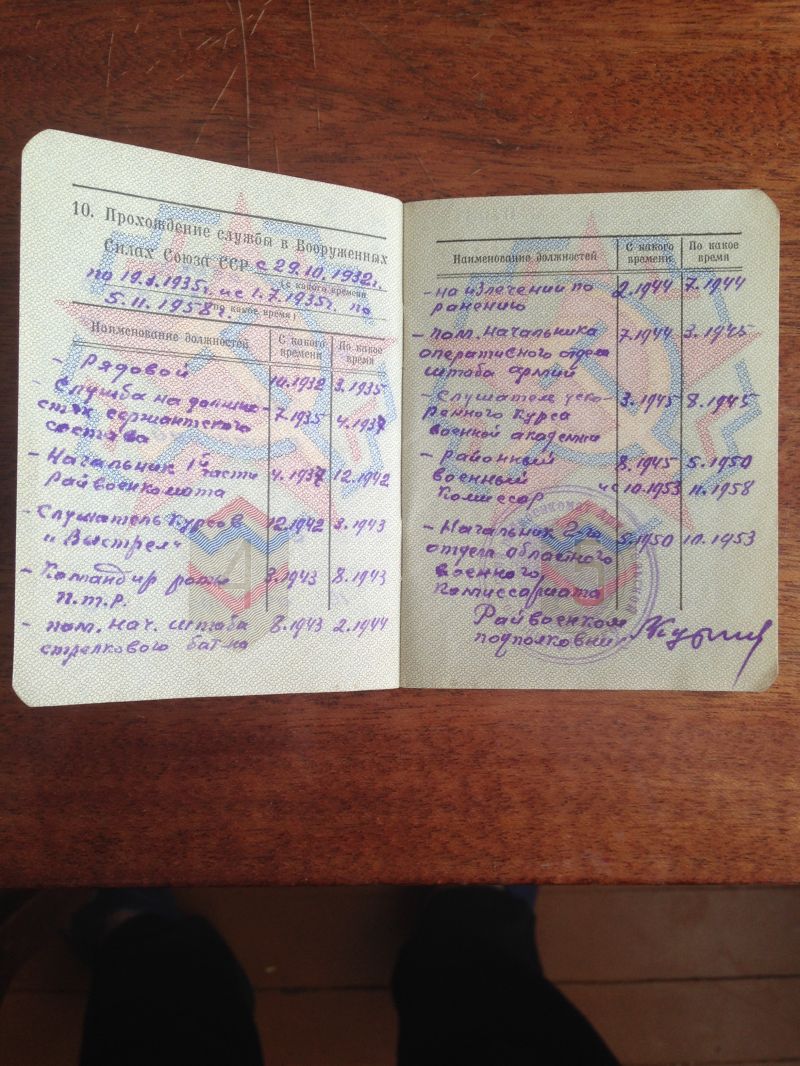 10. Прохождение службы в Вооруженных
Силах Союза ССР с 29.10.1932г.
(с какого времени
по 19.3.1935г. и с 1.7.1935г. по
по какое время)
5.11.1958г
Наименование должностей
С какого времени
По какое время
- Рядовой 10.1932 3.1935
- Служба на должно-
стях сержантского 7.1935 4.1937
состава
- Начальник 1й части 4.1937 12.1942
Райвоенкомата
- Слушатель курсов 12.1942 3.1943
"Выстрел"
- Командир роты 3.1943 8.1943
п.т.р.
- пом. нач. штаба 8.1943 2.1944
стрелкового бат-на
Наименование должностей
С какого времени
По какое время
- на излечении по 2.1944 7.1944
ранению
- пом. начальника 7.1944 3.1945
оперативного отдела
штаба армии
- Слушатель уско- 3.1945 8.1945
ренного курса
военной академии
- Районный 8.1945 5.1950
военный
комиссар и с 10.1953 11.1958
- Начальник 2-го 5.1950 10.1953
отдела областного
военного
комиссариата
Райвоенком
подполковник
4